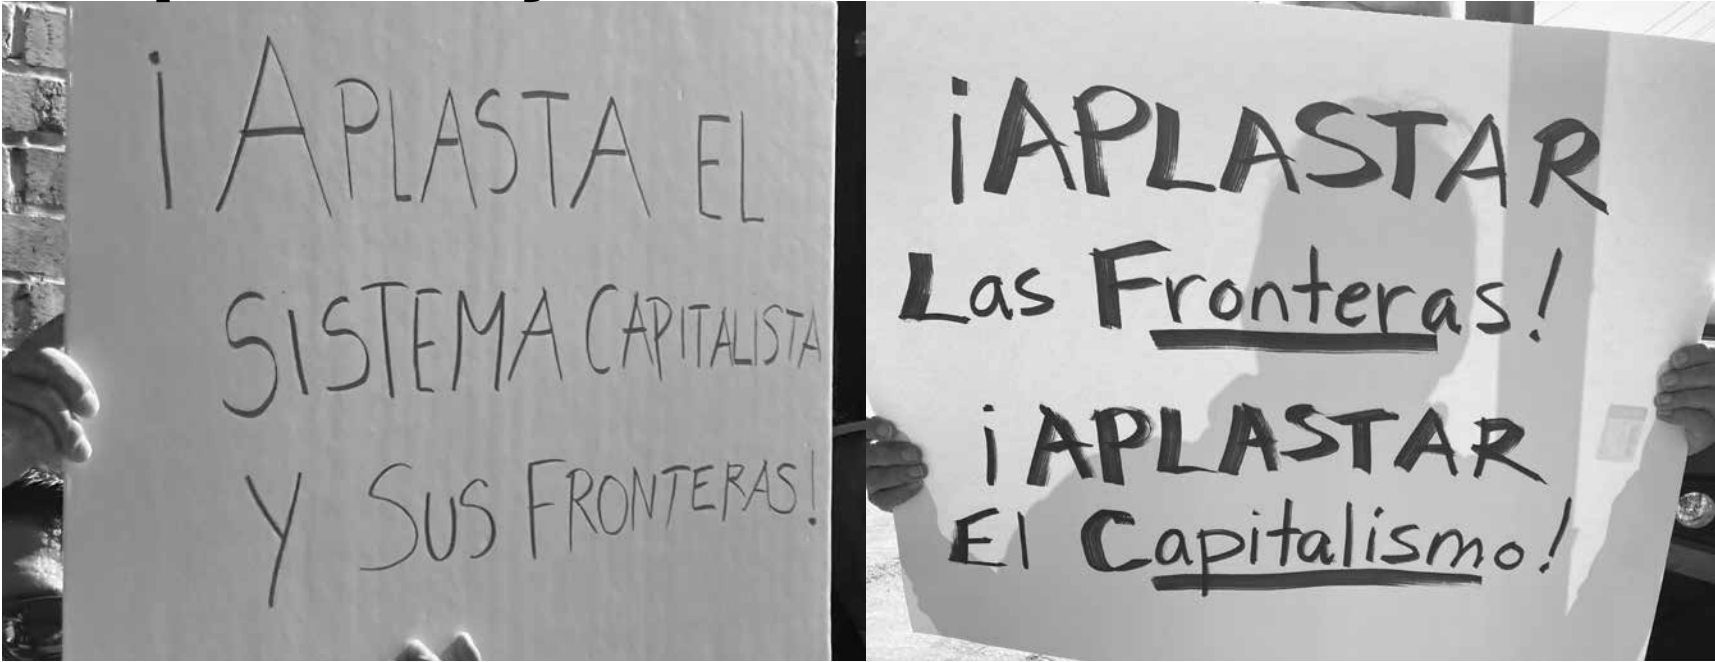 ¡APLASTA EL
SISTEMA CAPITALISTA
Y SUS FRONTERAS!
¡APLASTAR
Las Fronteras!
¡APLASTAR
El Capitalismo!